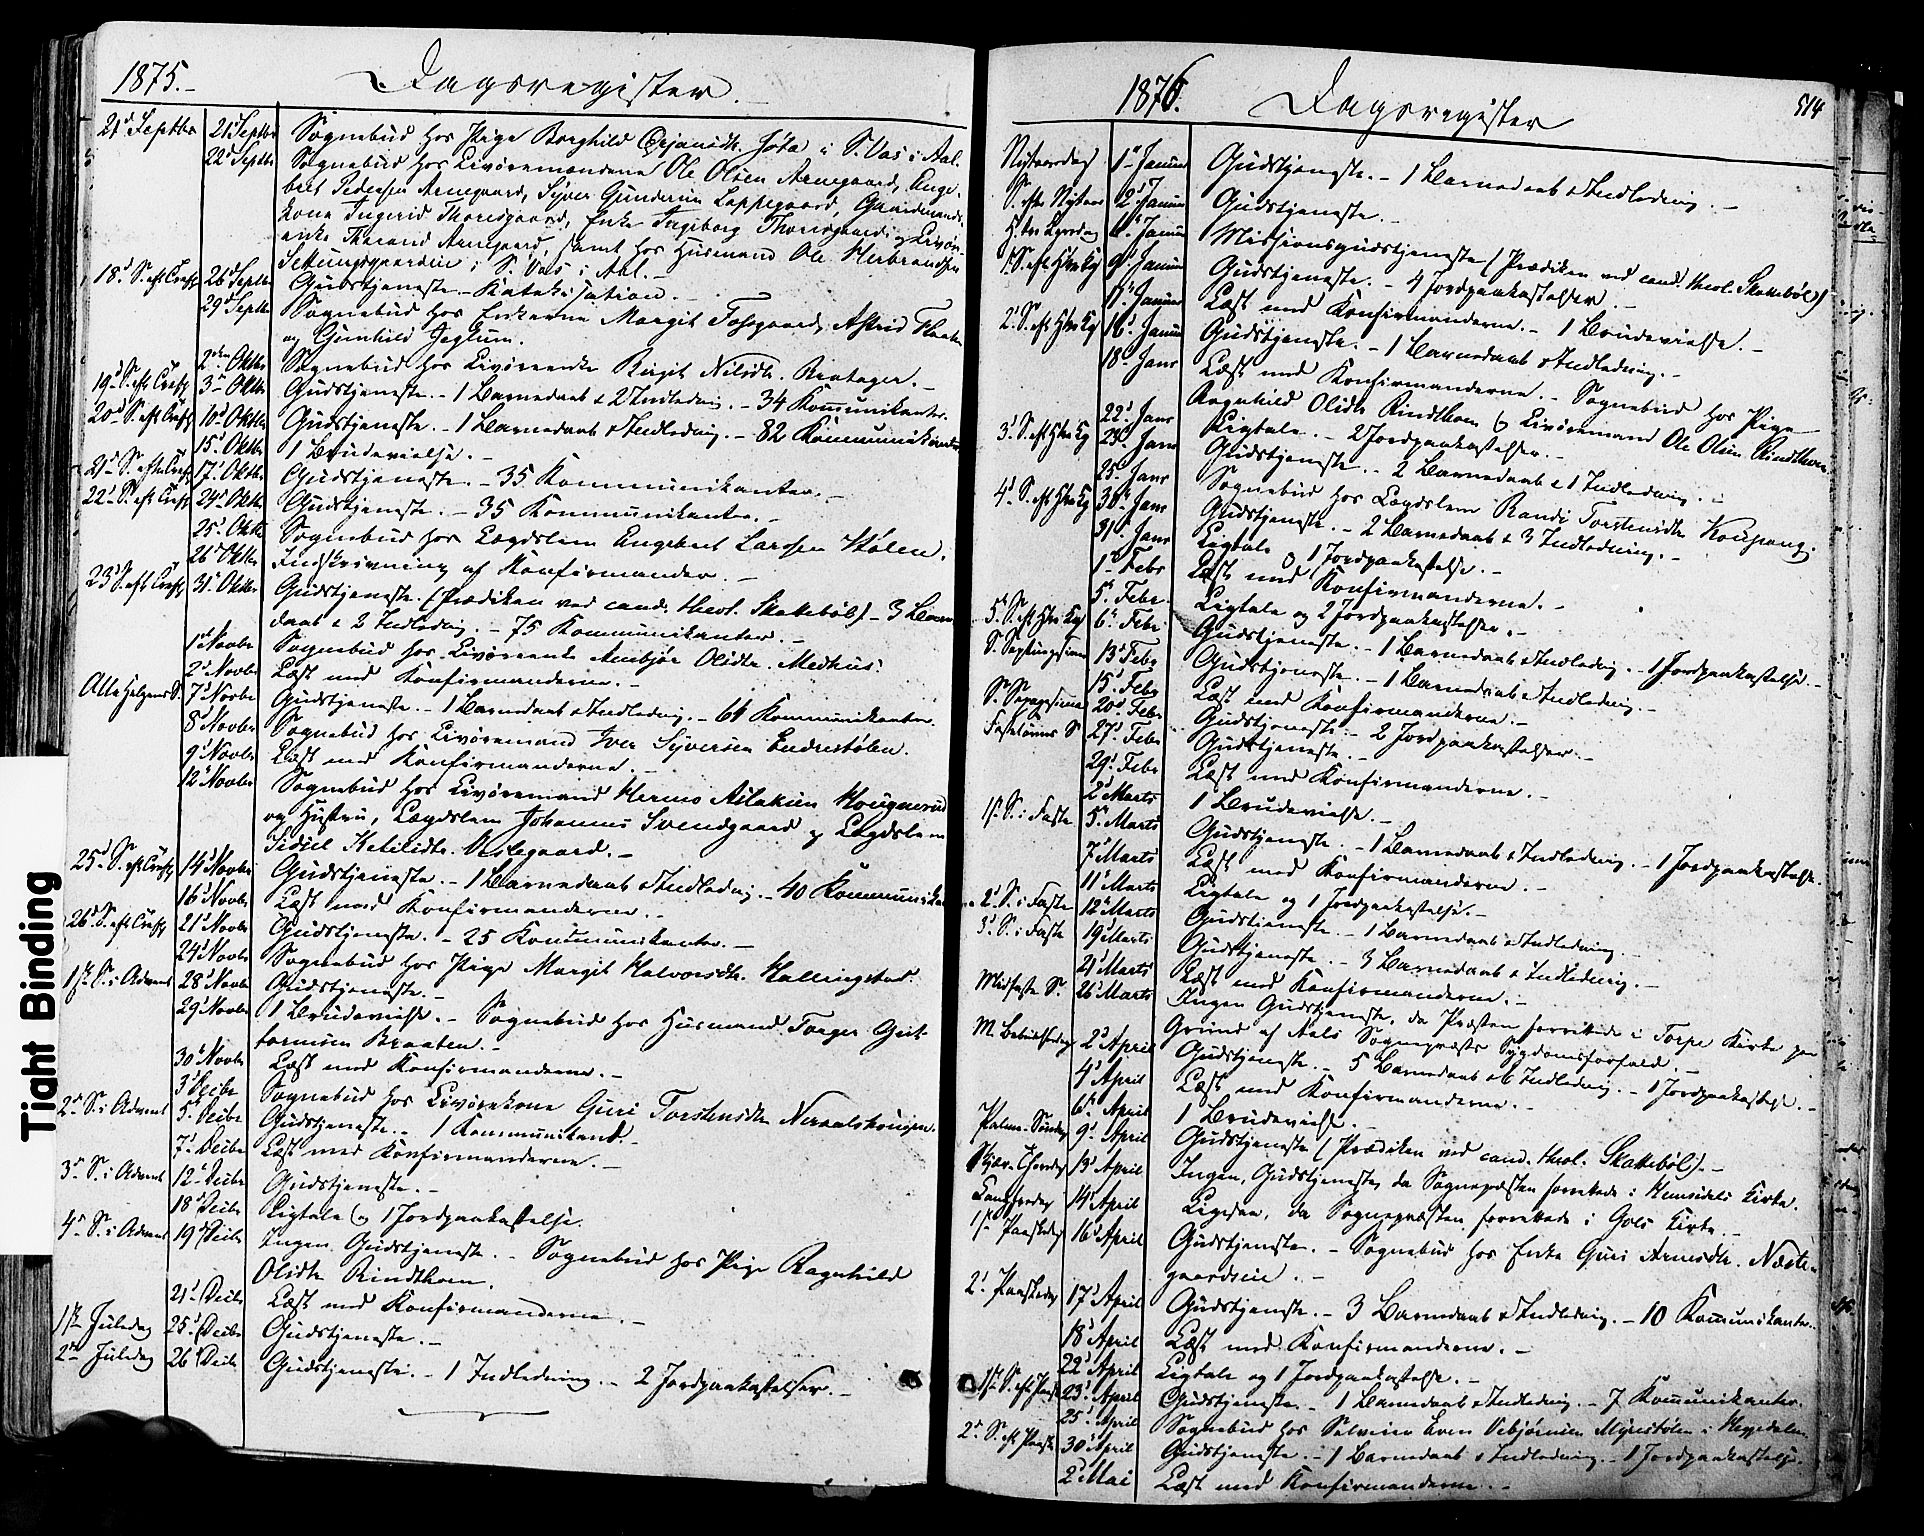 1875.- Dagsregister.-
21d Septbr 21d Septbr Sognebud hos Pige Borghild Ørjansdtr. Jøta i S. Vas i Aal.
22d Septbr Sognebud hos Livøremændene Ole Olsen Arnegaard, Enge-
bret Pedersen Arnegaard, Syver Gundersen Lappegaard, Gaardmands-
kone Ingerid Thoresgaard, Enke Ingeborg Thoresgaard, og Livør-
enke Tharand Arnegaard, samt hos Husmand Ole Herbrandsen
i S. Vas i Aal.-
18d S. eft Tref 26d Septbr Gudstjeneste.- Katekisation.-
29d Septbr Sognebud hos Enkerne Margit Astrid
og Gunhild Jeglum.
2den Oktbr Sognebud hos Livøreenke Birgit Nilsdtr. Bratager.-
19d S. eft Tref 3die Oktbr Gudstjeneste.- 1 Barnedaab & 2 Indledng.- 34 Kommunikanter.
20d S. eft Tref 10d Oktbr Gudstjeneste.- 1 Barnedaab & Indledng.- 82 Kommunikanter
15d Oktbr 1 Brudevielse.-
21d S. eft Tref 17d Oktbr Gudstjeneste.- 35 Kommunikanter.-
22d S. eft Tref 24d Oktbr Gudstjeneste.- 35 Kommunikanter.-
25d Oktbr Sognebud hos Lægdslem Engebret Larssen Stølen.
26d Oktbr Indskrivning af Konfirmander.-
23d S. eft Tref 31d Oktbr Gudstjeneste. (Prædiken ved cand. theol. Skattebøl).- 3 Barne-
daab & 2 Indledng.- 75 Kommunikanter.-
1d Novbr Sognebud hos Livøreenke Ambjør Olsdtr. Medhus.
2d Novbr Læst med Konfirmanderne.-
Alle Helgens S. 7d Novbr Gudstjeneste.- 1 Barnedaab & Indledng.- 64 Kommunikanter.
8d Novbr Sognebud hos Livøremand Iver Syversen Endrestølen.
9d Novbr Læst med Konfirmanderne.-
12d Novbr Sognebud hos Livøremand Aslaksen Hougerud
og Hustru, Lægdslem Johannes Svendgaard og Lægdslem
Sidsel Ketilsdtr. Uslegaard.-
25d S. eft Tref 14d Novbr Gudstjeneste.- 1 Barnedaab & Indledng.- 40 Kommunikanter
16d Novbr Læst med Konfirmanderne.-
26d S. eft Tref 21d Novbr Gudstjeneste.- 25 Kommunikanter.-
24d Novbr Sognebud hos Pige Margit Halvorsdtr. Hallingstad.
1ste S. i Advent 28d Novbr Gudstjeneste.-
29d Novbr 1 Brudevielse.- Sognebud hos Husmand Torger Gut-
tormsen Braaten.-
30d Novbr Læst med Konfirmanderne.-
3d Decbr Sognebud hos Livørekone Guri Torstensdtr
2d S. i Advent 5d Decbr Gudstjeneste.- 1 Kommunikant.-
7d Decbr Læst med Konfirmanderne.-
3d S. i Advent 12d Decbr Gudstjeneste.-
18d Decbr Ligtale og 1 Jordpaakastelse.
4d S. i Advent 19d Decbr Ingen Gudstjeneste.- Sognebud hos Pige Ragnhild
Olsdtr Rindthom.
21d Decbr Læst med Konfirmanderne.-
1ste Juledag 25d Decbr Gudstjeneste.-
2den Juledag 26d Decbr Gudstjeneste.- 1 Indledning.- 2 Jordpaakastelser.-
1876. Dagsregister 514
Nytaarsdag 1ste Januar Gudstjeneste.- 1 Barnedaab & Indledning.-
S. efter Nytaar 2d Januar Gudstjeneste.-
H. tre Kgersdag 6d Januar Missionsgudstjeneste (Prædiken ved cand. theol. Skattebøl)
1 S. eft H. tre Kg 9d Januar Gudstjeneste.- 4 Jordpaakastelser.-
11d Januar Læst med Konfirmanderne.- 1 Brudevielse.-
2d S. eft H. tre Kg 16d Januar Gudstjeneste.- 1 Barnedaab & Indledning.-
18d Janr Læst med Konfirmanderne.- Sognebud hos Pige
Ragnhild Olsdtr Rindthom og Livøremand Ole Olsen Rindthom.
22d Janr Ligtale.- 2 Jordpaakastelser.-
3d S. eft H. tre Kg 23d Janr Gudstjeneste.- 2 Barnedaab & 1 Indledning.-
25d Janr Sognebud hos Lægdslem Randi Torstensdtr
4d S. eft H. tre Kg 30d Janr Gudstjeneste.- 2 Barnedaab & 3 Indledning.-
31d Janr Ligtale og 1 Jordpaakastelse.-
1ste Febr Læst med Konfirmanderne.-
5d Febr. Ligtale og 2 Jordpaakastelser.-
5d S. eft H. tre Kg 6d Febr Gudstjeneste.- 1 Barnedaab & Indledng.- 1 Jordpaakastelse.-
S. Septuagesima 13d Febr Gudstjeneste.- 1 Barnedaab & Indledning.-
15d Febr Læst med Konfirmanderne.-
S. Sexagesima 20d Febr Gudstjeneste.- 2 Jordpaakastelser.-
Fastelavns S 27d Febr Gudstjeneste.-
29d Febr Læst med Konfirmanderne.-
2d Marts 1 Brudevielse.-
1ste S. i Faste 5d Marts Gudstjeneste.- 1 Barnedaab & Indledning.- 1 Jordpaakastelse.
7d Marts Læst med Konfirmanderne.-
11d Marts Ligtale og 1 Jordpaakastelse.-
2d S. i Faste 12d Marts Gudstjeneste.- 1 Barnedaab & Indledning.-
3d S. i Faste 19d Marts Gudstjeneste.- 3 Barnedaab & Indledning.-
21d Marts Læst med Konfirmanderne.-
Midfaste S. 26d Marts Ingen Gudstjeneste, da Præsten forrettede i Torpe Kirke paa
Grund af Aals Sognepræsts Sygdomsforfald.-
M. Bebudelsesdag 2d April Gudstjeneste.- 5 Barnedaab & 6 Indledng.- 1 Jordpaakastelse.-
4d April Læst med Konfirmanderne.-
6d April 1 Brudevielse.-
Palme-Søndag 9d April Gudstjeneste (Prædiken ved cand. theol. Skattebøl).-
Skjær-Thorsdag 13d April Ingen Gudstjeneste, da Sognepræsten forrettede i Hemsedals Kirke.
Langfredag 14d April Ligesaa, da Sognepræsten forrettede i Gols Kirke.-
1ste Paaskedag 16d April Gudstjeneste.- Sognebud hos Enke Guri Arnesdtr. Næste-
gaardseie.-
2d Paaskedag 17d April Gudstjeneste.- 3 Barnedaab & Indledng.- 10 Kommunikanter.
18d April Læst med Konfirmanderne.-
22d April Ligtale og 1 Jordpaakastelse.-
1ste S. eft Paaske 23d April Gudstjeneste.- 1 Barnedaab & Indledng.- 7 Kommunikanter.
25d April Sognebud hos Selveier Even Vebjørnsen Myrestølen i
2d S. eft Paaske 30d April Gudstjeneste.- 1 Barnedaab & Indledning.- 1 Jordpaakastelse.
2d Mai Læst med Konfirmanderne.-
Tight Binding